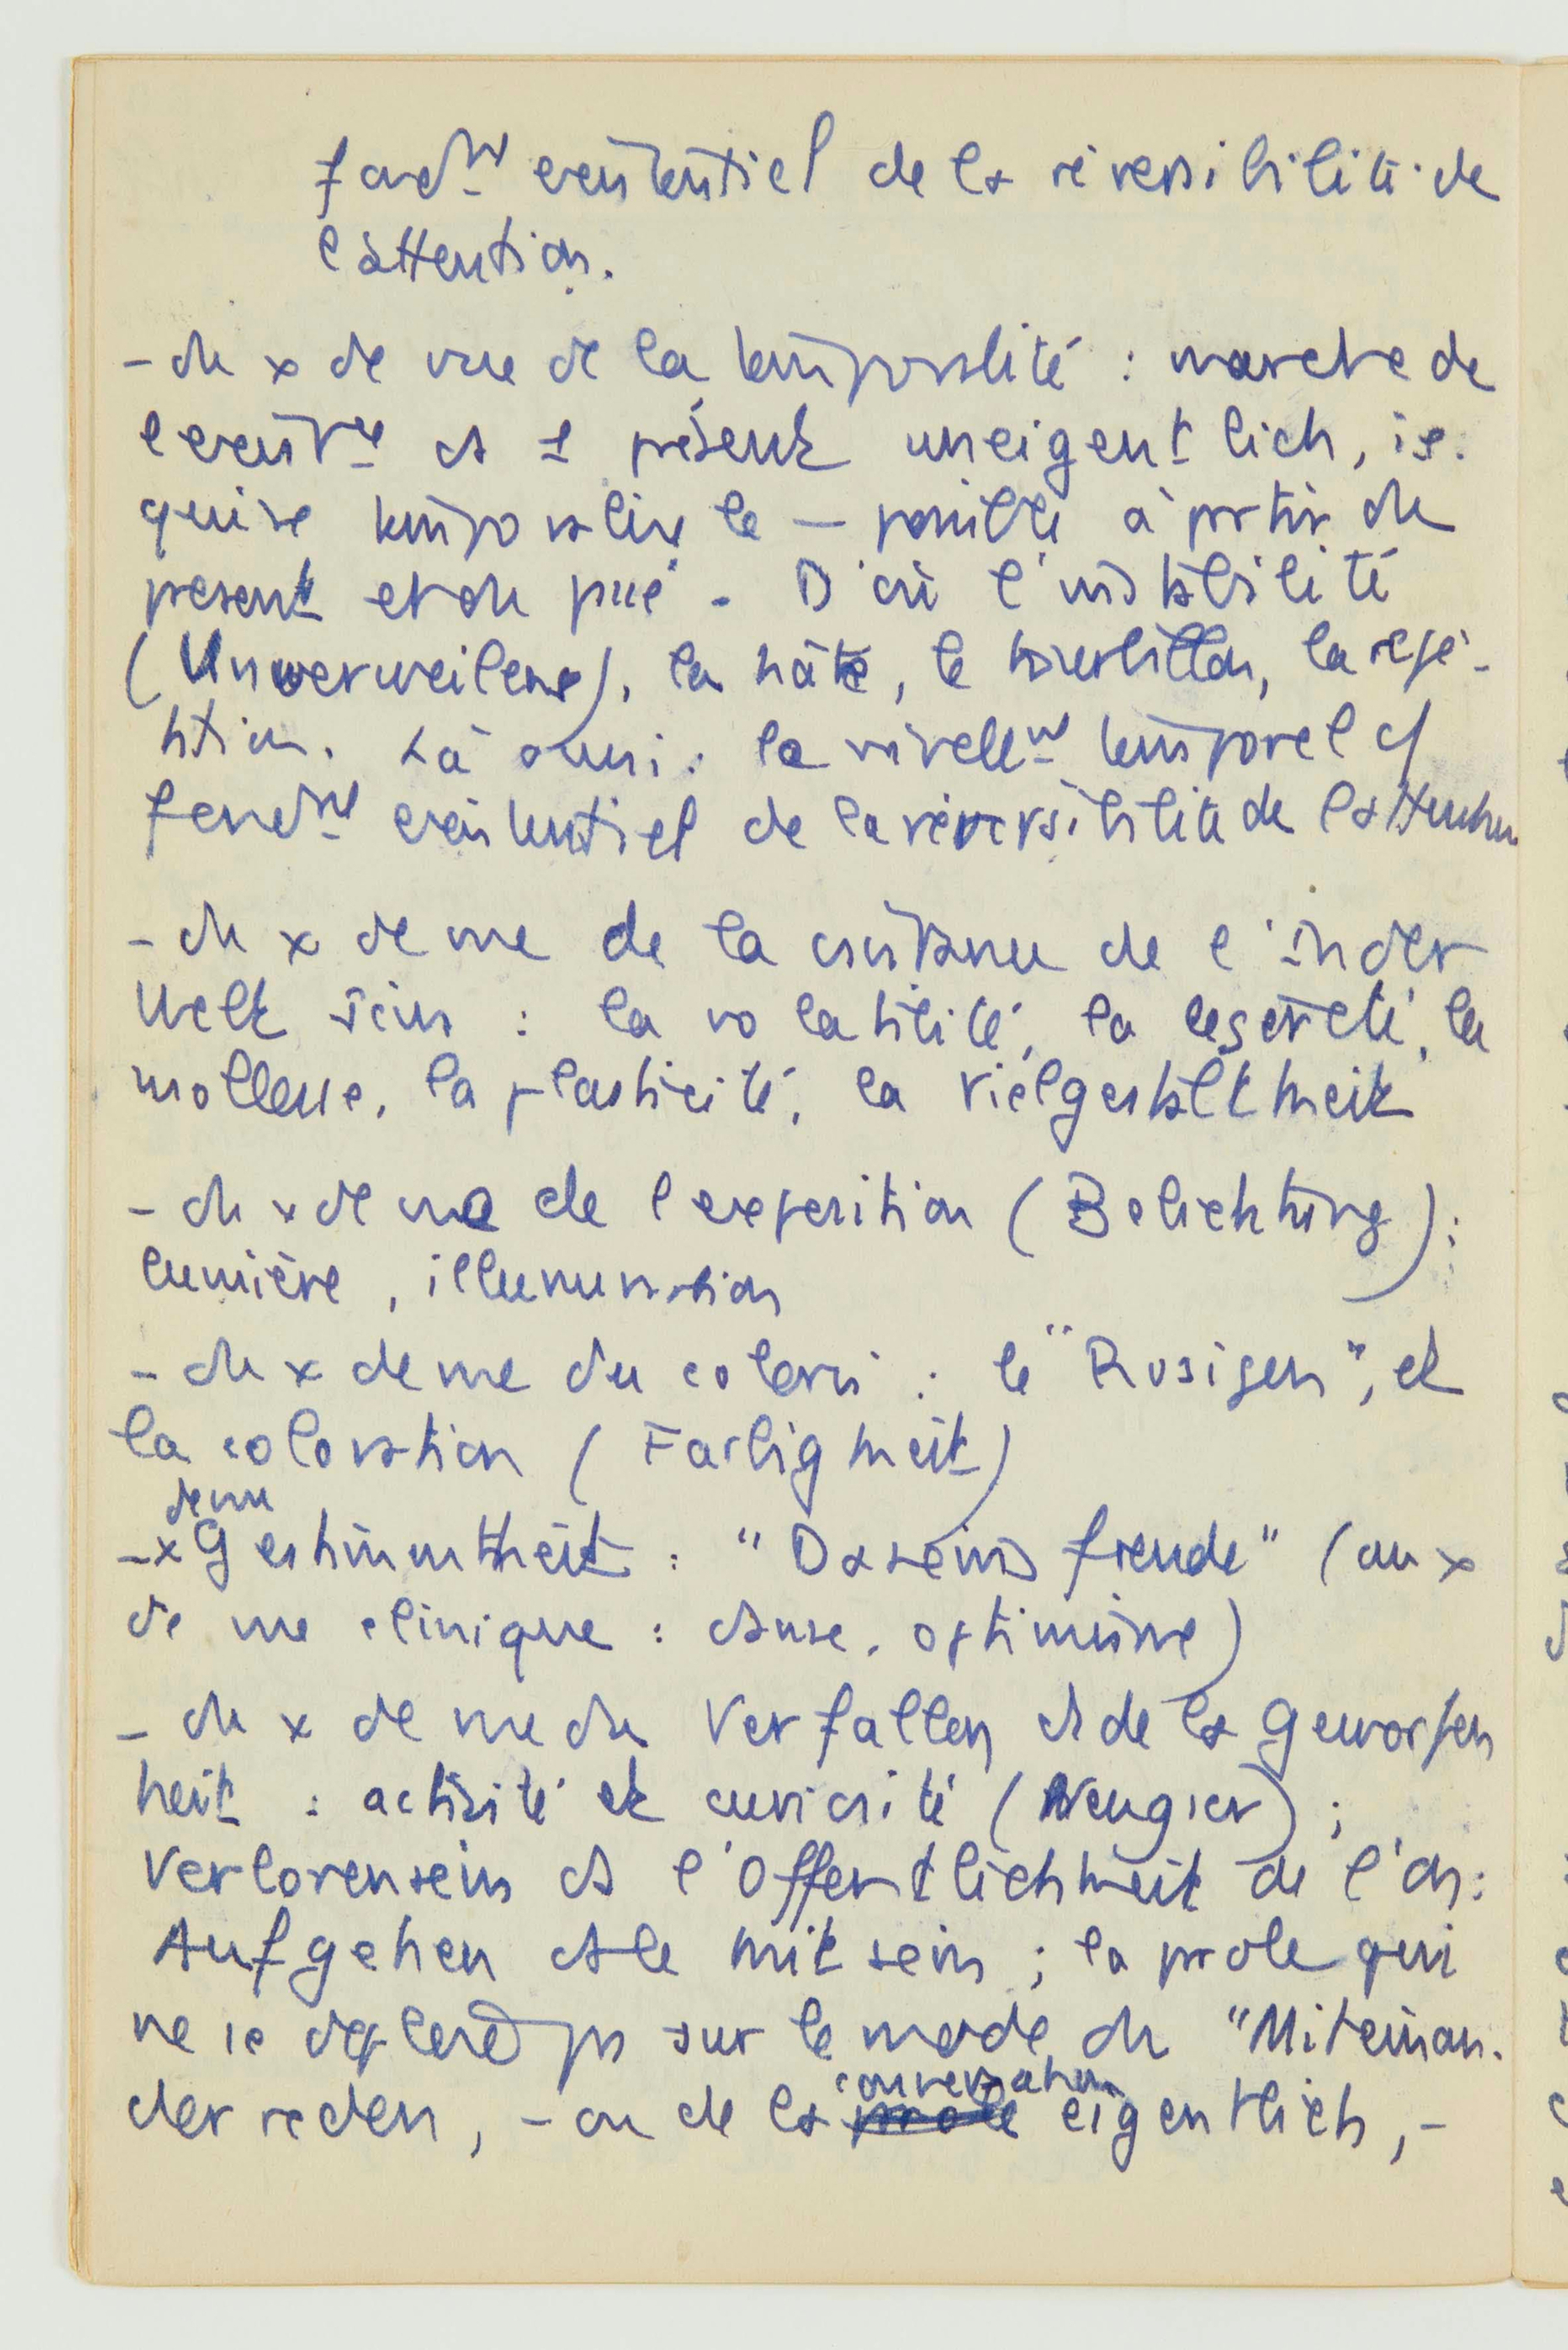 fondmt existentiel de la réversibilité de
l'attention.
- du x de vue de la temporalité : marche de
l'existce ds 1 présent uneigentlich, ie.
qui se temporalise le - possible à partir du
present et du passé. D'où l'instabilité
(Unverweilen), la hâte, le tourbillon, la répé-
tition. Là aussi : le nivellmt temporel cf
fondmt existentiel de la réversibilité de l'attention
- du x de vue de la consistance de l'In der
Welt sein : la volatilité, la legereté, la
mollesse, la plasticité, la Vielgestaltheit
- du x de vue de l'exposition (Belichtung) :
lumière, illumination
- du x de vue du coloris : le "Rosigen", et
la coloration (Farbigkeit)
- x de vue Gestimmtheit : "Daseinsfreude" (au x
de vue clinique : danse, optimisme)
- du x de vue du Verfallen et de la Geworfen
heit : activité et curiosité (Neugier) ;
Verlorensein ds l'Offentlichkeit de l'on :
Aufgehen ds le mitsein ; la parole qui
ne se déploie pas sur le mode du "Miteinan-
der reden, - ou de la parole conversation eigentlich, -